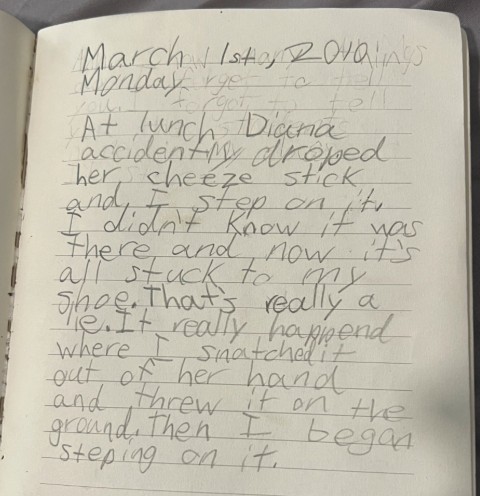 March 1st, 2010
Monday.
At lunch Diana
accidently droped
her cheeze stick
and I step on it.
I didn't know it was
there and now it's
all stuck to my
shoe. That's really a
lie. It really happend
where I snatched it
out of her hand
and threw it on the
ground. Then I began
steping on it.